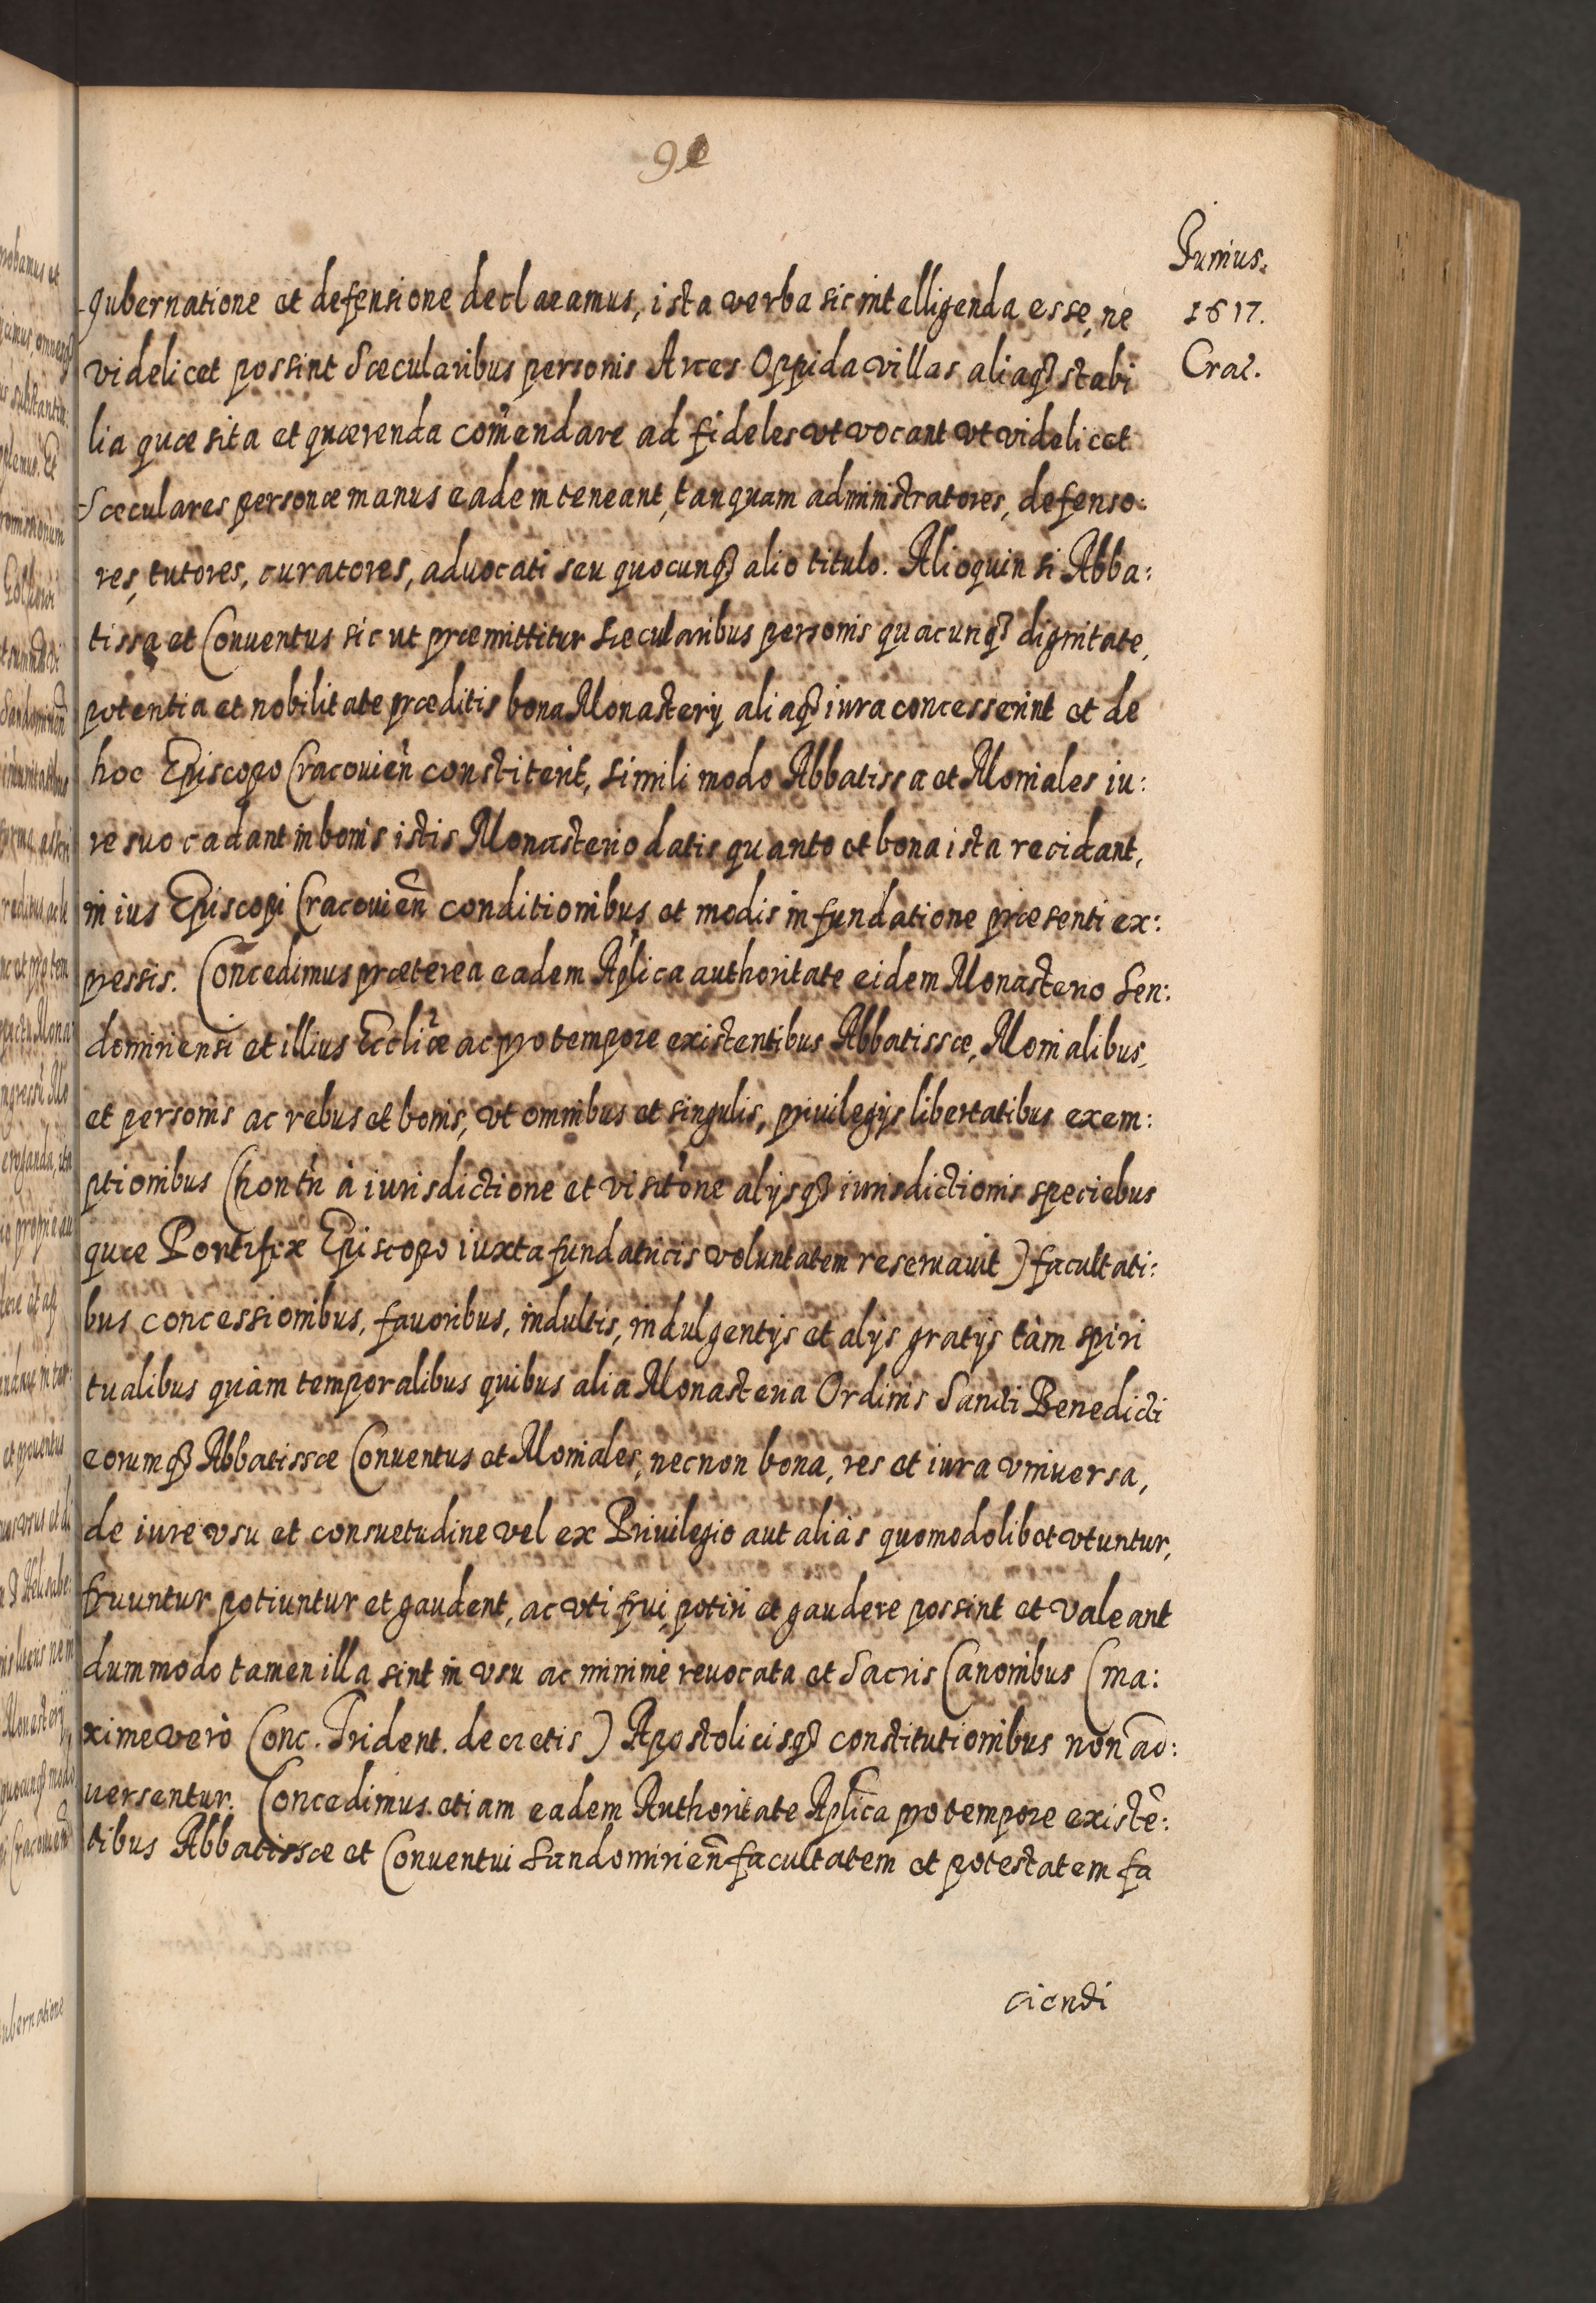 Junius.
1617.
Crac.
gubernatione et defensione declaramus, ista verba sic intelligenda esse, ne
videlicet possint Sæcularibus personis Arces Oppida villas aliaq₃ stabi
lia quæsita et quærenda com̃endare ad fideles vt vocant vt videlicet
Sæculares personæ manus eadem teneant, tanquam administratores, defenso:
res, tutores, curatores, aduocati seu quocunq₃ alio titulo. Alioquin si Abba:
tissa et Conuentus sic ut præmittitur Sæcularibus personis quacunq₃ dignitate,
potentia et nobilitate præditis bona Monasterij aliaq₃ iura concesserint et de
hoc Episcopo Cracouień constiterit, simili modo Abbatissa et Moniales iu:
re suo cadant in bonis istis Monasterio datis quanto et bona ista recidant,
in ius Episcopi Cracouień conditionibus et modis in fundatione præsenti ex:
pressis. Concedimus præterea eadem Ap̃lica authoritate eidem Monasterio Sen:
domiriensi et illius Eccliæ ac pro tempore existentibus Abbatissæ, Monialibus,
et personis ac rebus et bonis, vt omnibus et singulis, priuilegijs libertatibus exem:
ptionibus (non tń à iurisdictione et visit̃one alijsq₃ iurisdictionis speciebus
quæ Pontifex Episcopo iuxta fundatricis voluntatem reseruauit) facultati:
bus concessionibus, fauoribus, indultis, indulgentijs et alijs gratijs tàm spiri
tualibus quàm temporalibus quibus alia Monasteria Ordinis Sancti Benedicti
eorumq₃ Abbatissæ Conuentus et Moniales, necnon bona, res et iura vniuersa,
de iure vsu et consuetudine vel ex Priuilegio aut aliàs quomodolibet vtuntur,
fruuntur potiuntur et gaudent, ac vti frui potiri et gaudere possint et valeant
dummodo tamen illa sint in vsu ac minimè reuocata et Sacris Canonibus (ma:
ximè verò Conc. Trident. decretis) Apostolicisq₃ constitutionibus non ad:
uersentur. Concedimus etiam eadem Authoritate Aplica pro tempore existẽ:
tibus Abbatissæ et Conuentui Sandomirień facultatem et potestatem fa
ciendi